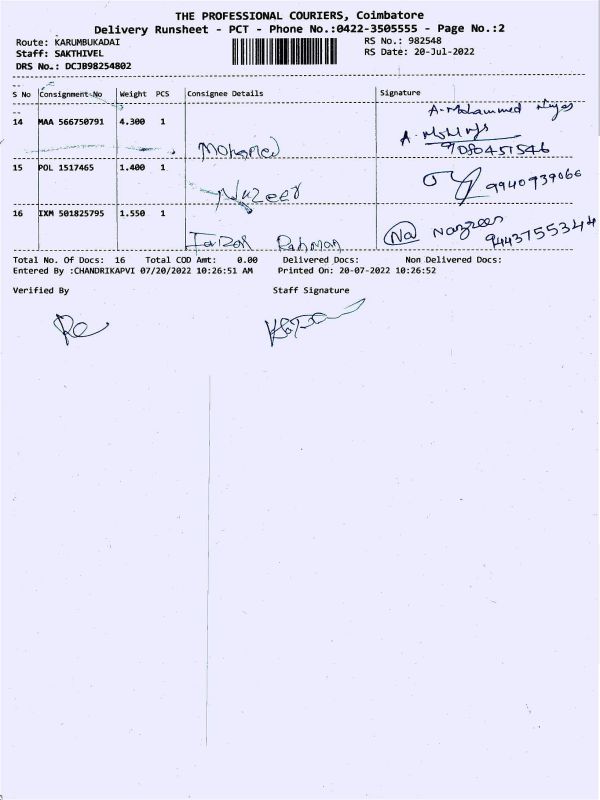 THE PROFESSIONAL COURIERS, Coimbatore
Delivery Runsheet - PCT - Phone No.:0422-3505555 - Page No.:2
Route: KARUMBUKADAI
RS No.: 982548
Staff: SAKTHIVEL
RS Date: 20-Jul-2022
DRS No.: DCJB98254802
S No Consignment No Weight PCS Consignee Details Signature
A-Mohammed
14 MAA 566750791 4.300 1
Mohamed
9080451546
15 POL 1517465 1.400 1
Nazeer 9940939066
16 IXM 501825795 1.550 1
Faizor Rahman Na Nazreen
9443755344
Total No. Of Docs: 16 Total COD Amt: 0.00 Delivered Docs: Non Delivered Docs:
Entered By :CHANDRIKAPVI 07/20/2022 10:26:51 AM Printed On: 20-07-2022 10:26:52
Verified By Staff Signature